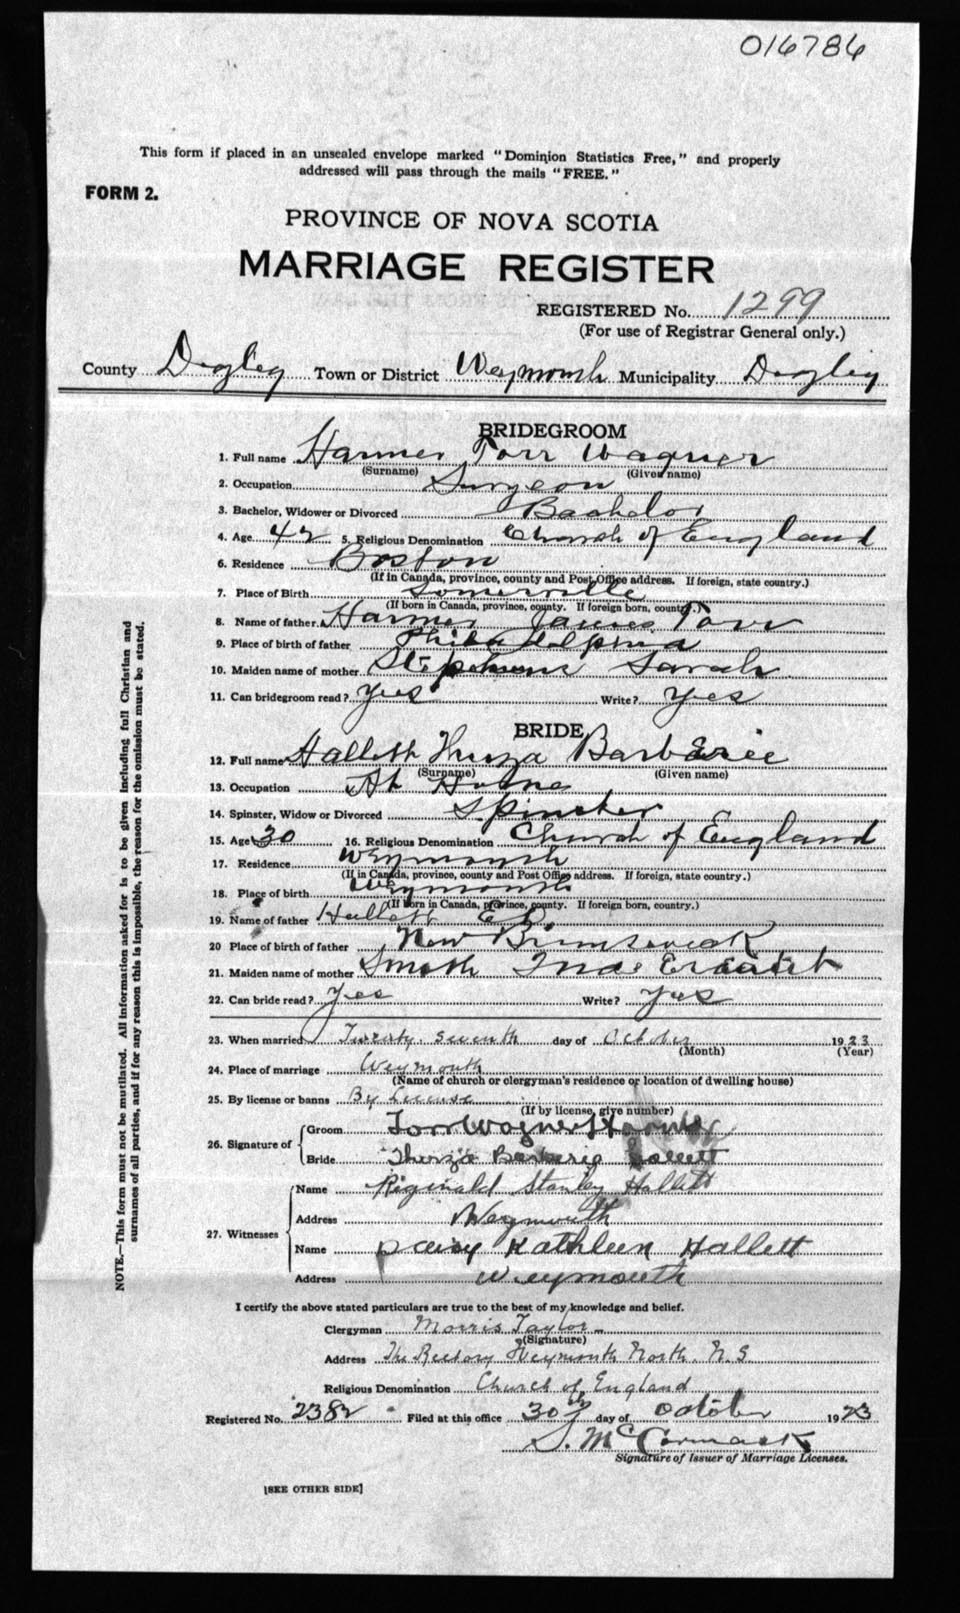 016786
This form if placed in an unsealed envelope marked "Dominion Statistics Free," and properly
addressed will pass through the mails "FREE."
FORM 2.
PROVINCE OF NOVA SCOTIA
MARRIAGE REGISTER
REGISTERED No. 1299
(For use of Registrar General only.)
County Digby Town or District Weymouth Municipality Digby
BRIDEGROOM
1. Full name Harmer Torr Wagner
(Surname) (Given name)
2. Occupation Surgeon
3. Bachelor, Widower or Divorced Bachelor
4. Age 42 5. Religious Denomination Church of England
6. Residence Boston
(If in Canada, province, county and Post Office address. If foreign, state country.)
7. Place of Birth Somerville
(If born in Canada, province, county. If foreign born, country.)
8. Name of father Harmer James Torr
9. Place of birth of father Philadelphia
10. Maiden name of mother Stephens Sarah
11. Can bridegroom read? yes Write? yes
BRIDE
12. Full name Hallett Thirza Barberie
(Surname) (Given name)
13. Occupation At Home
14. Spinster, Widow or Divorced Spinster
15. Age 30 16. Religious Denomination Church of England
17. Residence Weymouth
(If in Canada, province, county and Post Office address. If foreign, state country.)
18. Place of birth Weymouth
(If born in Canada, province, county. If foreign born, country.)
19. Name of father Hallett
20 Place of birth of father New Brunswick
21. Maiden name of mother Smith
22. Can bride read? yes Write? yes
23. When married Twenty seventh day of October 1923
(Month) (Year)
24. Place of marriage Weymouth
(Name of church or clergyman's residence or location of dwelling house)
25. By license or banns By License
(If by license, give number)
26. Signature of Groom Torr Wagner Harmer
Bride Therza Barberie Hallett
27. Witnesses Name Riginald Stanley Hallett
Address Weymouth
Name Daisy Kathleen Hallett
Address Weymouth
I certify the above stated particulars are true to the best of my knowledge and belief.
Clergyman Morris Taylor
(Signature)
Address The Rectory Weymouth North. N.S
Religious Denomination Church of England
Registered No. 2382 Filed at this office 30th day of October 1923
S. McCormack
Signature of Issuer of Marriage Licenses.
[SEE OTHER SIDE]
NOTE.—This form must not be mutilated. All information asked for is to be given including full Christian and
surnames of all parties, and if for any reason this is impossible, the reason for the omission must be stated.